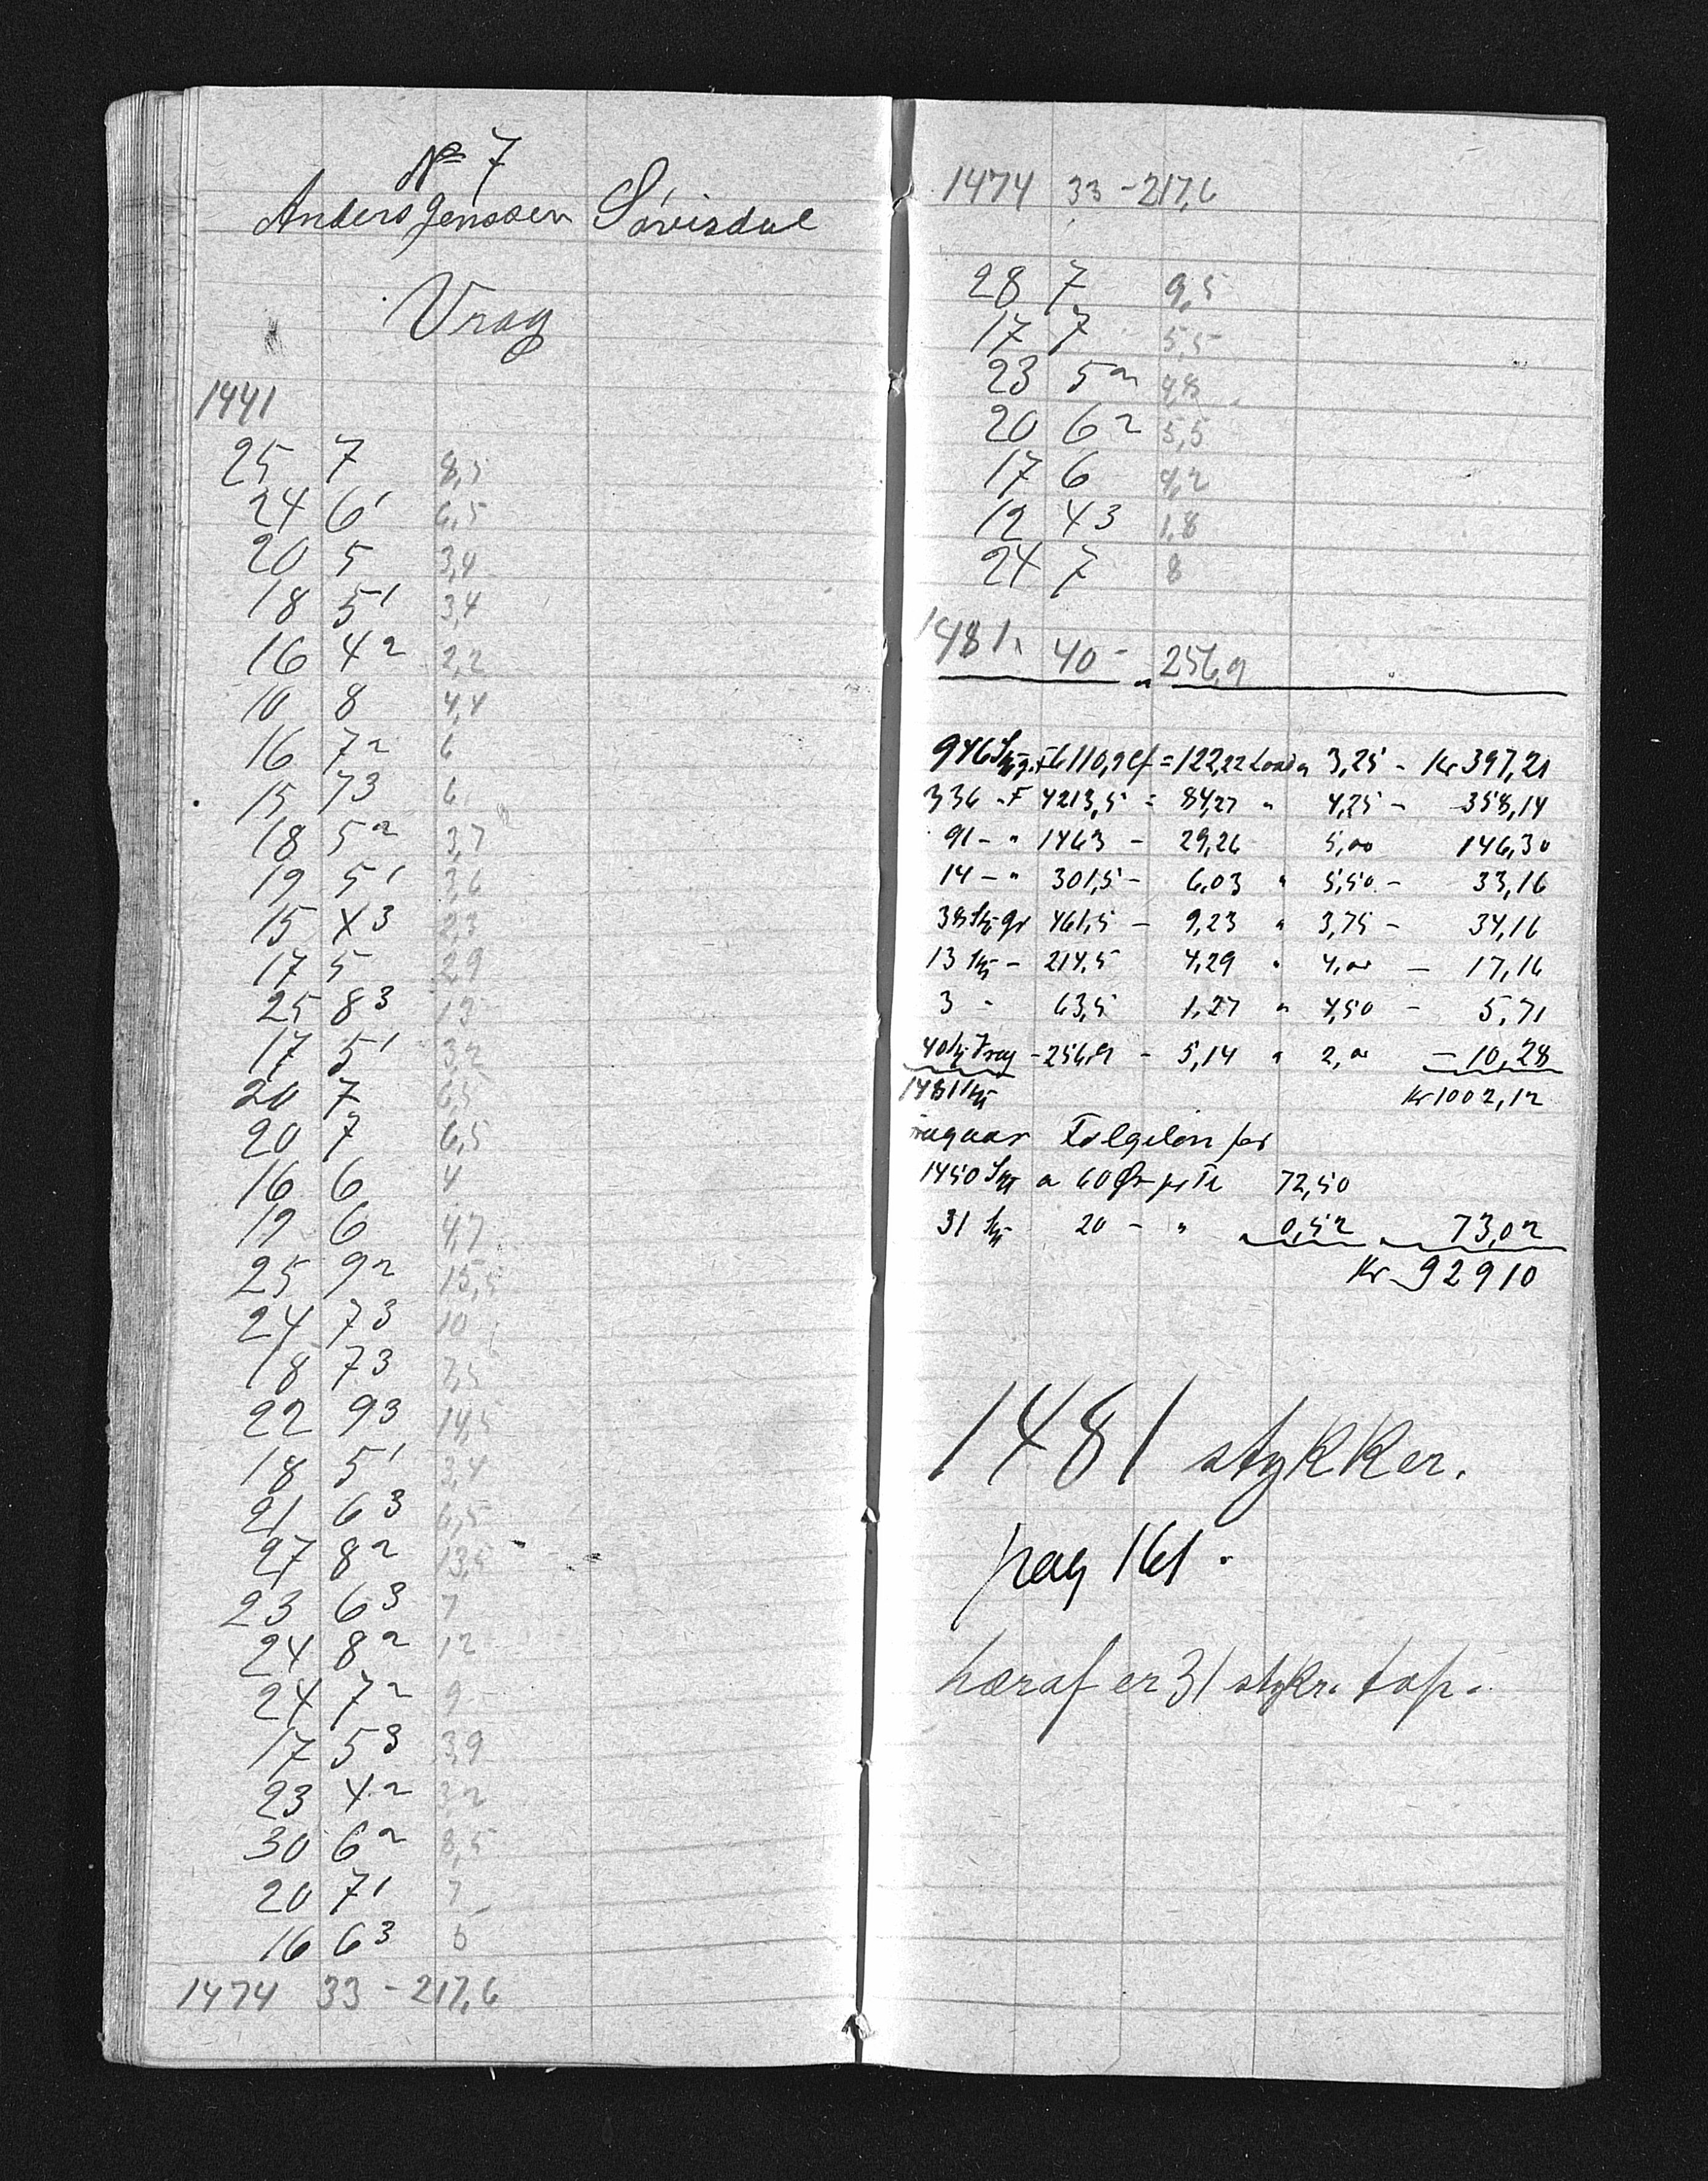 No 7
Anders Jenssen Sørisdal
Vrag
1441
25 7 8,5
24 6 1 6,5
20 5 3,4
18 5 1 3,4
16 4 2 2,2
10 8 4,4
16 7 2 6
15 7 3 6
18 5 2 3,7
19 5 1 3,6
15 4 3 2,3
17 5 2,9
25 8 3 13
17 5 1 3,2
20 7 6,5
20 7 6,5
16 6 4
19 6 4,7
25 9 2 15,5
24 7 3 10
18 7 3 7,5
22 9 3 14,5
18 5 1 3,4
21 6 3 6,5
27 8 2 13,5
23 6 3 7
24 8 2 12
24 7 2 9
17 5 3 3,9
23 4 2 3,2
30 6 2 8,5
20 7 1 7
16 6 3 5
1474 33 - 217,6
1474 33 - 217,6
28 7 9,5
17 7 5,5
23 5 2 4,8
20 6 2 5,5
17 6 4,2
12 4 3 1,8
24 7 8
1481. 40 - 256,9
946 Stk gr. F 6110,9 Cf = 122,22 Load a 3,25 - Kr 397,21
336 - F 4213,5 = 84,27 " 4,25 - 358,14
91 - " 1463 - 29,26 5,00 146,30
14 - " 301,5 - 6,03 " 5,50 - 33,16
38 Stk gr 461,5 - 9,23 " 3,75 - 34,16
13 Stk - 214,5 4,29 " 4,00 - 17,16
3 - 63,5 1,27 " 4,50 - 5,71
40 Stk Vrag - 256,9 - 5,14 a 2,00 - 10,28
1481 Stk Kr 1002,12
Følgelön for
1450 Stk a 60 Ør pr Tr 72,50
31 Stk 20 - " 0,52 73,02
Kr 929 10
1481 stykker.
pag 161.
hæraf er 31 stykr. top.